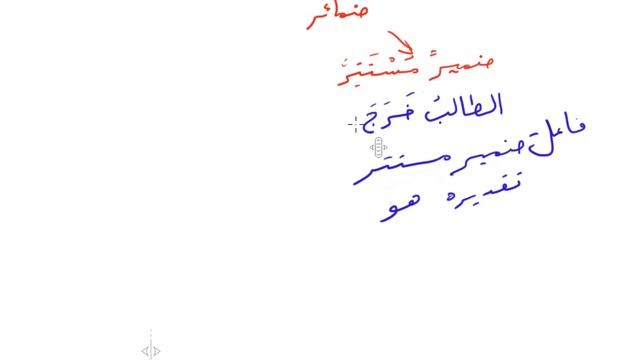 ضمائر
ضميرٌ مَسْتَتِرٌ
الطالبُ خَرَجَ
فاعل ضمير مستتر
تقديره هو